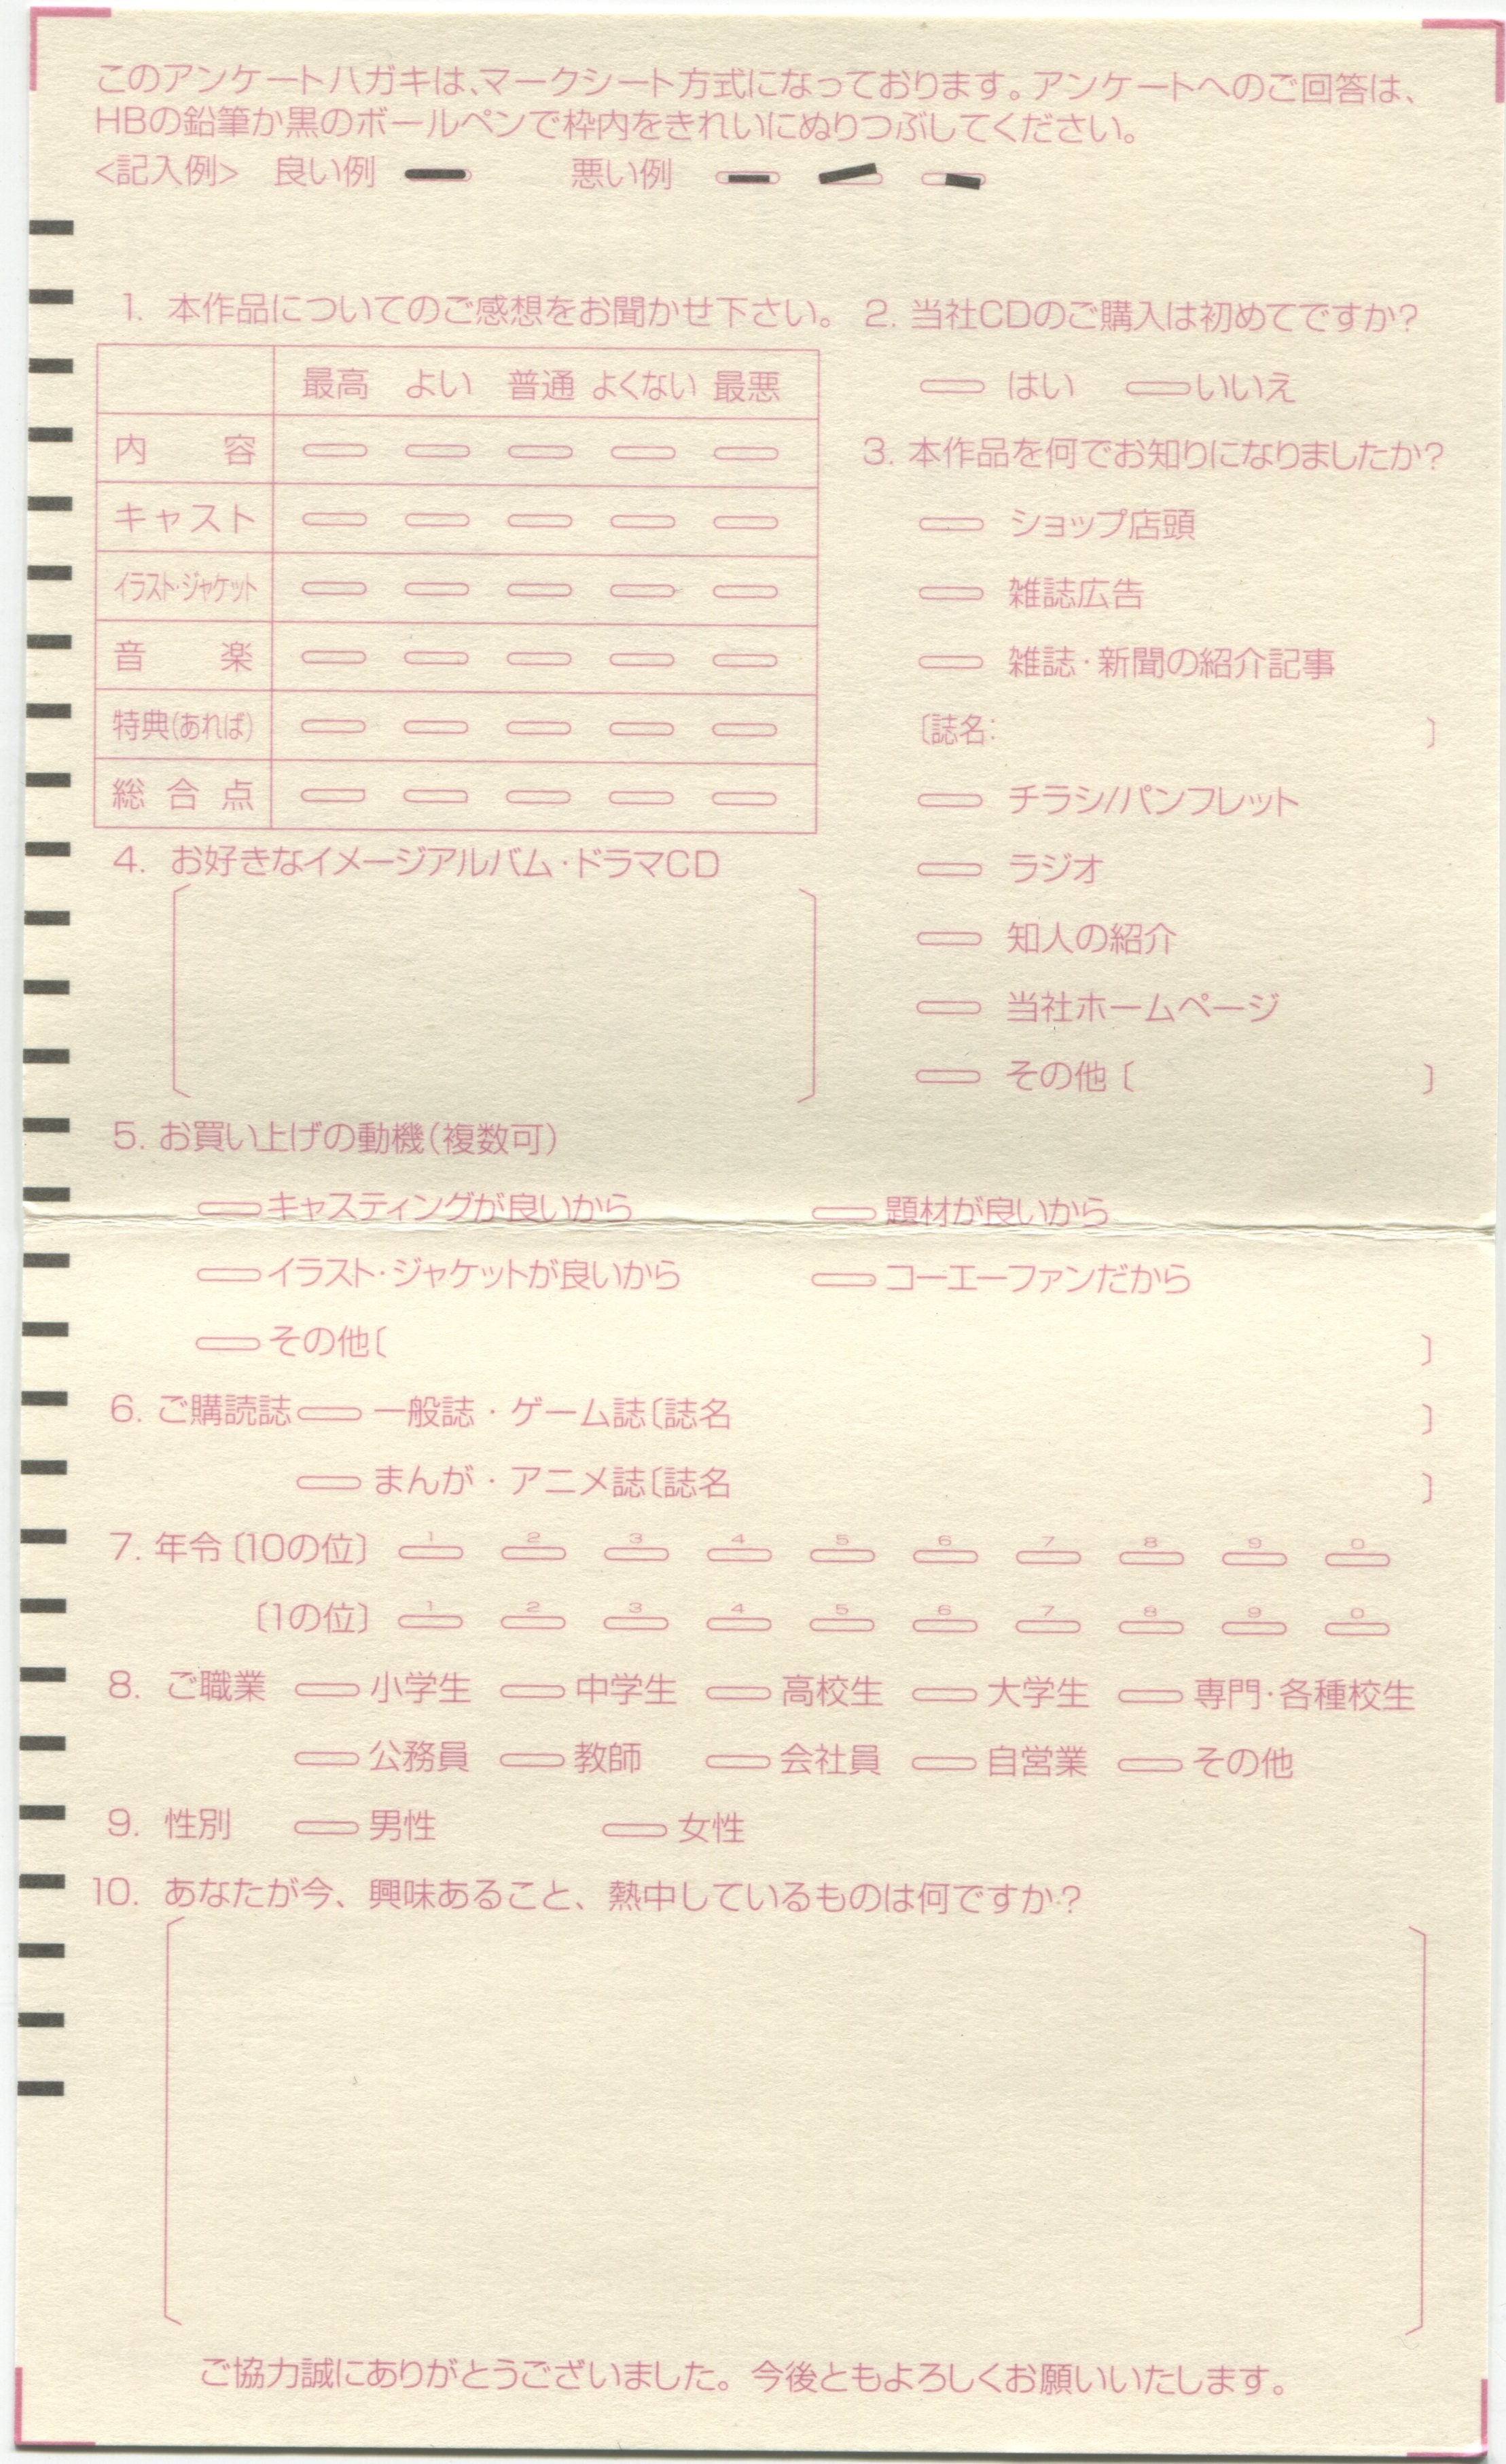 このアンケートハガキは、マークシート方式になっております。アンケートへのご回答は、
HBの鉛筆か黒のボールペンで枠内をきれいにぬりつぶしてください。
<記入例> 良い例 悪い例
1. 本作品についてのご感想をお聞かせ下さい。
最高 よい 普通 よくない 最悪
内容
キャスト
イラスト・ジャケット
音楽
特典(あれば)
総合点
2. 当社CDのご購入は初めてですか?
はい いいえ
3. 本作品を何でお知りになりましたか?
ショップ店頭
雑誌広告
雑誌・新聞の紹介記事
〔誌名: 〕
チラシ/パンフレット
ラジオ
知人の紹介
当社ホームページ
その他〔 〕
4. お好きなイメージアルバム・ドラマCD
5. お買い上げの動機(複数可)
キャスティングが良いから 題材が良いから
イラスト・ジャケットが良いから コーエーファンだから
その他〔 〕
6. ご購読誌 一般誌・ゲーム誌〔誌名 〕
まんが・アニメ誌〔誌名 〕
7. 年令〔10の位〕 1 2 3 4 5 6 7 8 9 0
〔1の位〕 1 2 3 4 5 6 7 8 9 0
8. ご職業 小学生 中学生 高校生 大学生 専門・各種校生
公務員 教師 会社員 自営業 その他
9. 性別 男性 女性
10. あなたが今、興味あること、熱中しているものは何ですか?
ご協力誠にありがとうございました。今後ともよろしくお願いいたします。